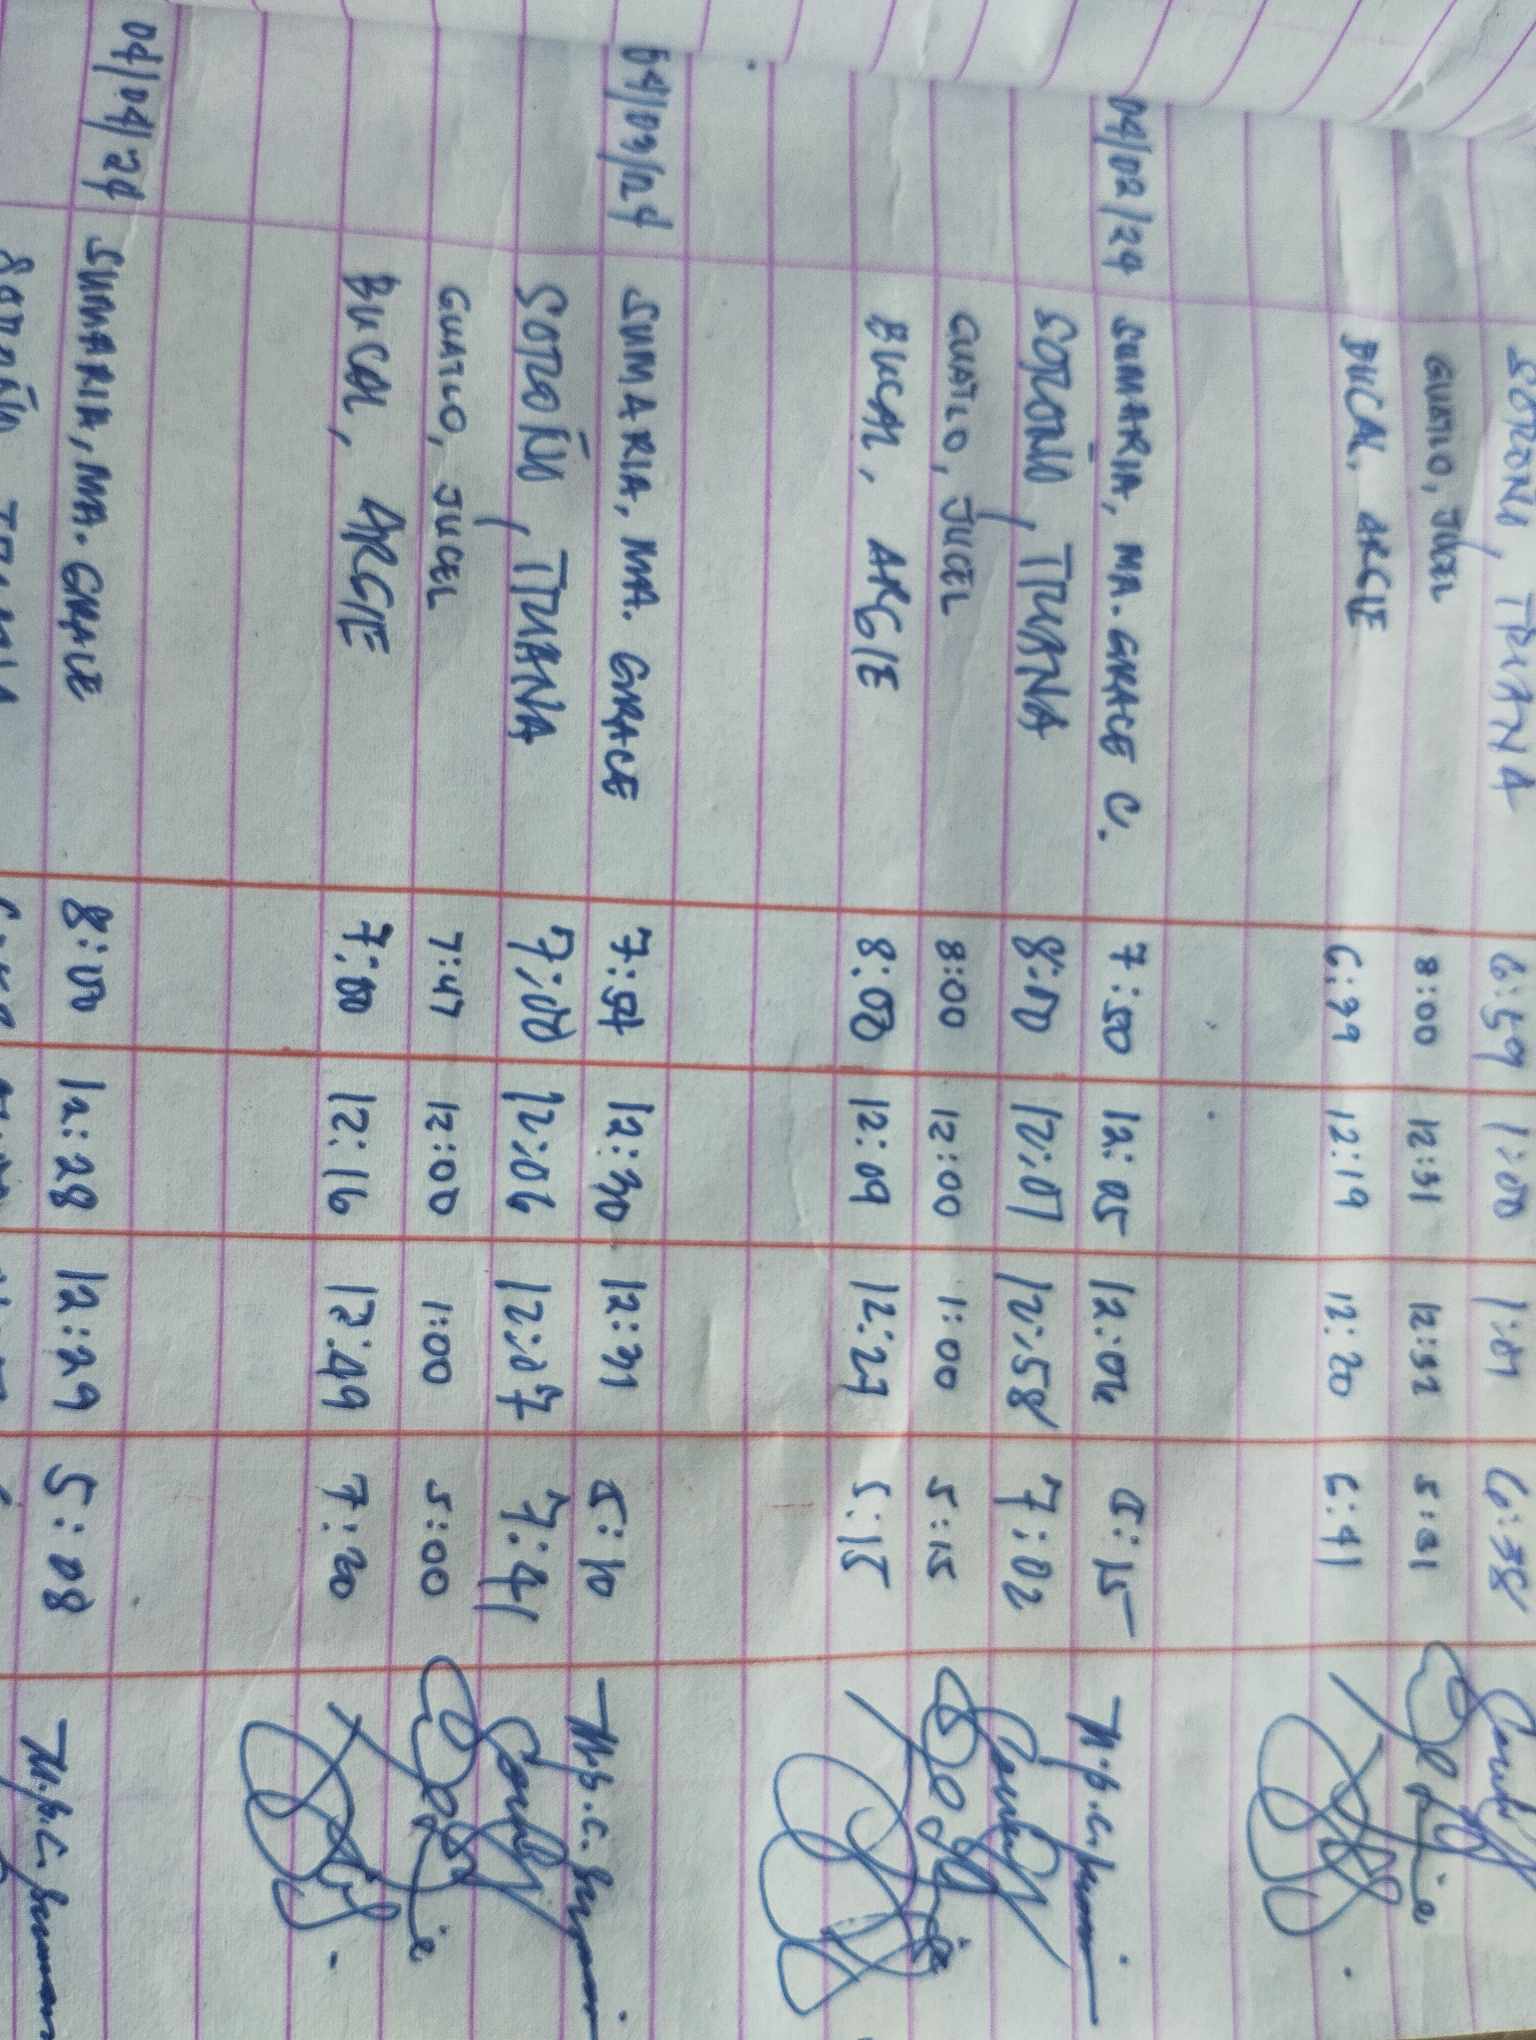 GUATLO, JUCEL 8:00 12:31 12:32 5:31
BUCAL, ARGIE 6:39 12:19 12:20 6:41
04/02/24 SUMARIA, MA. GRACE C. 7:50 12:05 12:06 5:15
SOTOÑI, TRIANA 8:00 12:07 12:58 7:02
GUATLO, JUCEL 8:00 12:00 1:00 5:15
BUCAL, ARGIE 8:00 12:09 12:27 5:15
04/03/24 SUMARIA, MA. GRACE 7:54 12:30 12:31 5:10
SOTOÑI, TRIANA 7:00 12:06 12:07 7:41
GUATLO, JUCEL 7:47 12:00 1:00 5:00
BUCAL, ARGIE 7:00 12:16 12:49 7:20
04/04/24 SUMARIA, MA. GRACE 8:00 12:28 12:29 5:08